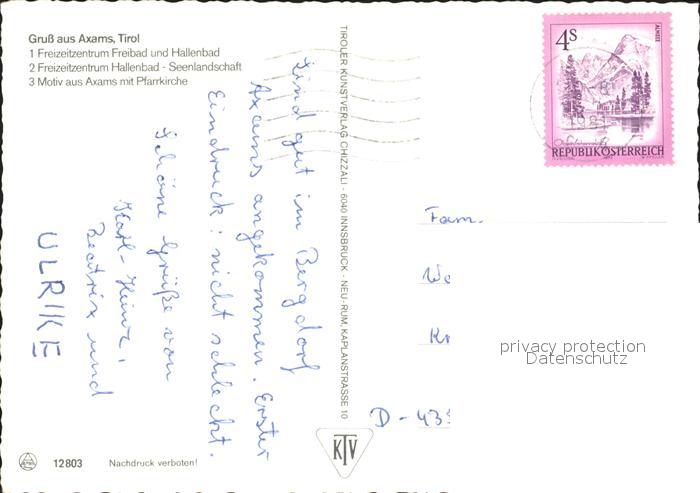 Gruß aus Axams, Tirol
1 Freizeitzentrum Freibad und Hallenbad
2 Freizeitzentrum Hallenbad - Seenlandschaft
3 Motiv aus Axams mit Pfarrkirche
Sind gut im Bergdorf
Axams angekommen. Erster
Eindruck: nicht schlecht.
Schöne Grüße von
Karl-Heinz,
Beatrix und
ULRIKE
TIROLER KUNSTVERLAG CHIZZALI - 6040 INNSBRUCK - NEU-RUM, KAPLANSTRASSE 10
4S
ALMSEE
REPUBLIK ÖSTERREICH
Fam.
We
Kr
D - 43
privacy protection
Datenschutz
KTV
12803 Nachdruck verboten!